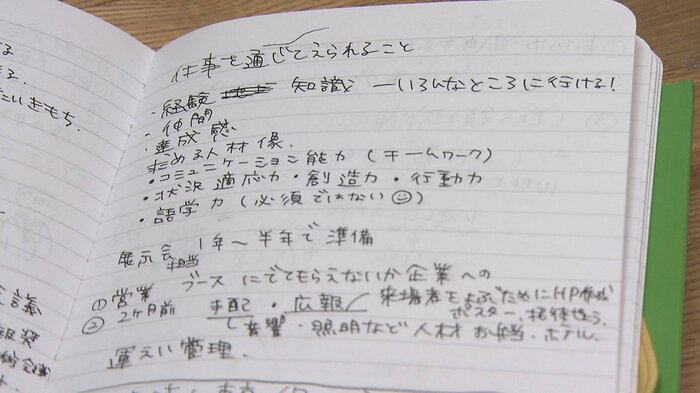 る
る.
たいきもち.
仕事を通じてえられること
・経験 知識 ーいろんなところに行ける!
・仲間
・達成感
求める人材像.
・コミュニケーション能力(チームワーク)
・状況適応力・創造力・行動力
・語学力(必須ではない☺)
展示会 1年〜半年で準備
担当
①営業 ブースにでてもらえないか企業への
②2ヶ月前 手配・広報 来場者をよぶためにHP作成
ポスター、招待状.
音響・照明など人材 お弁当・ホテル.
運えい管理.